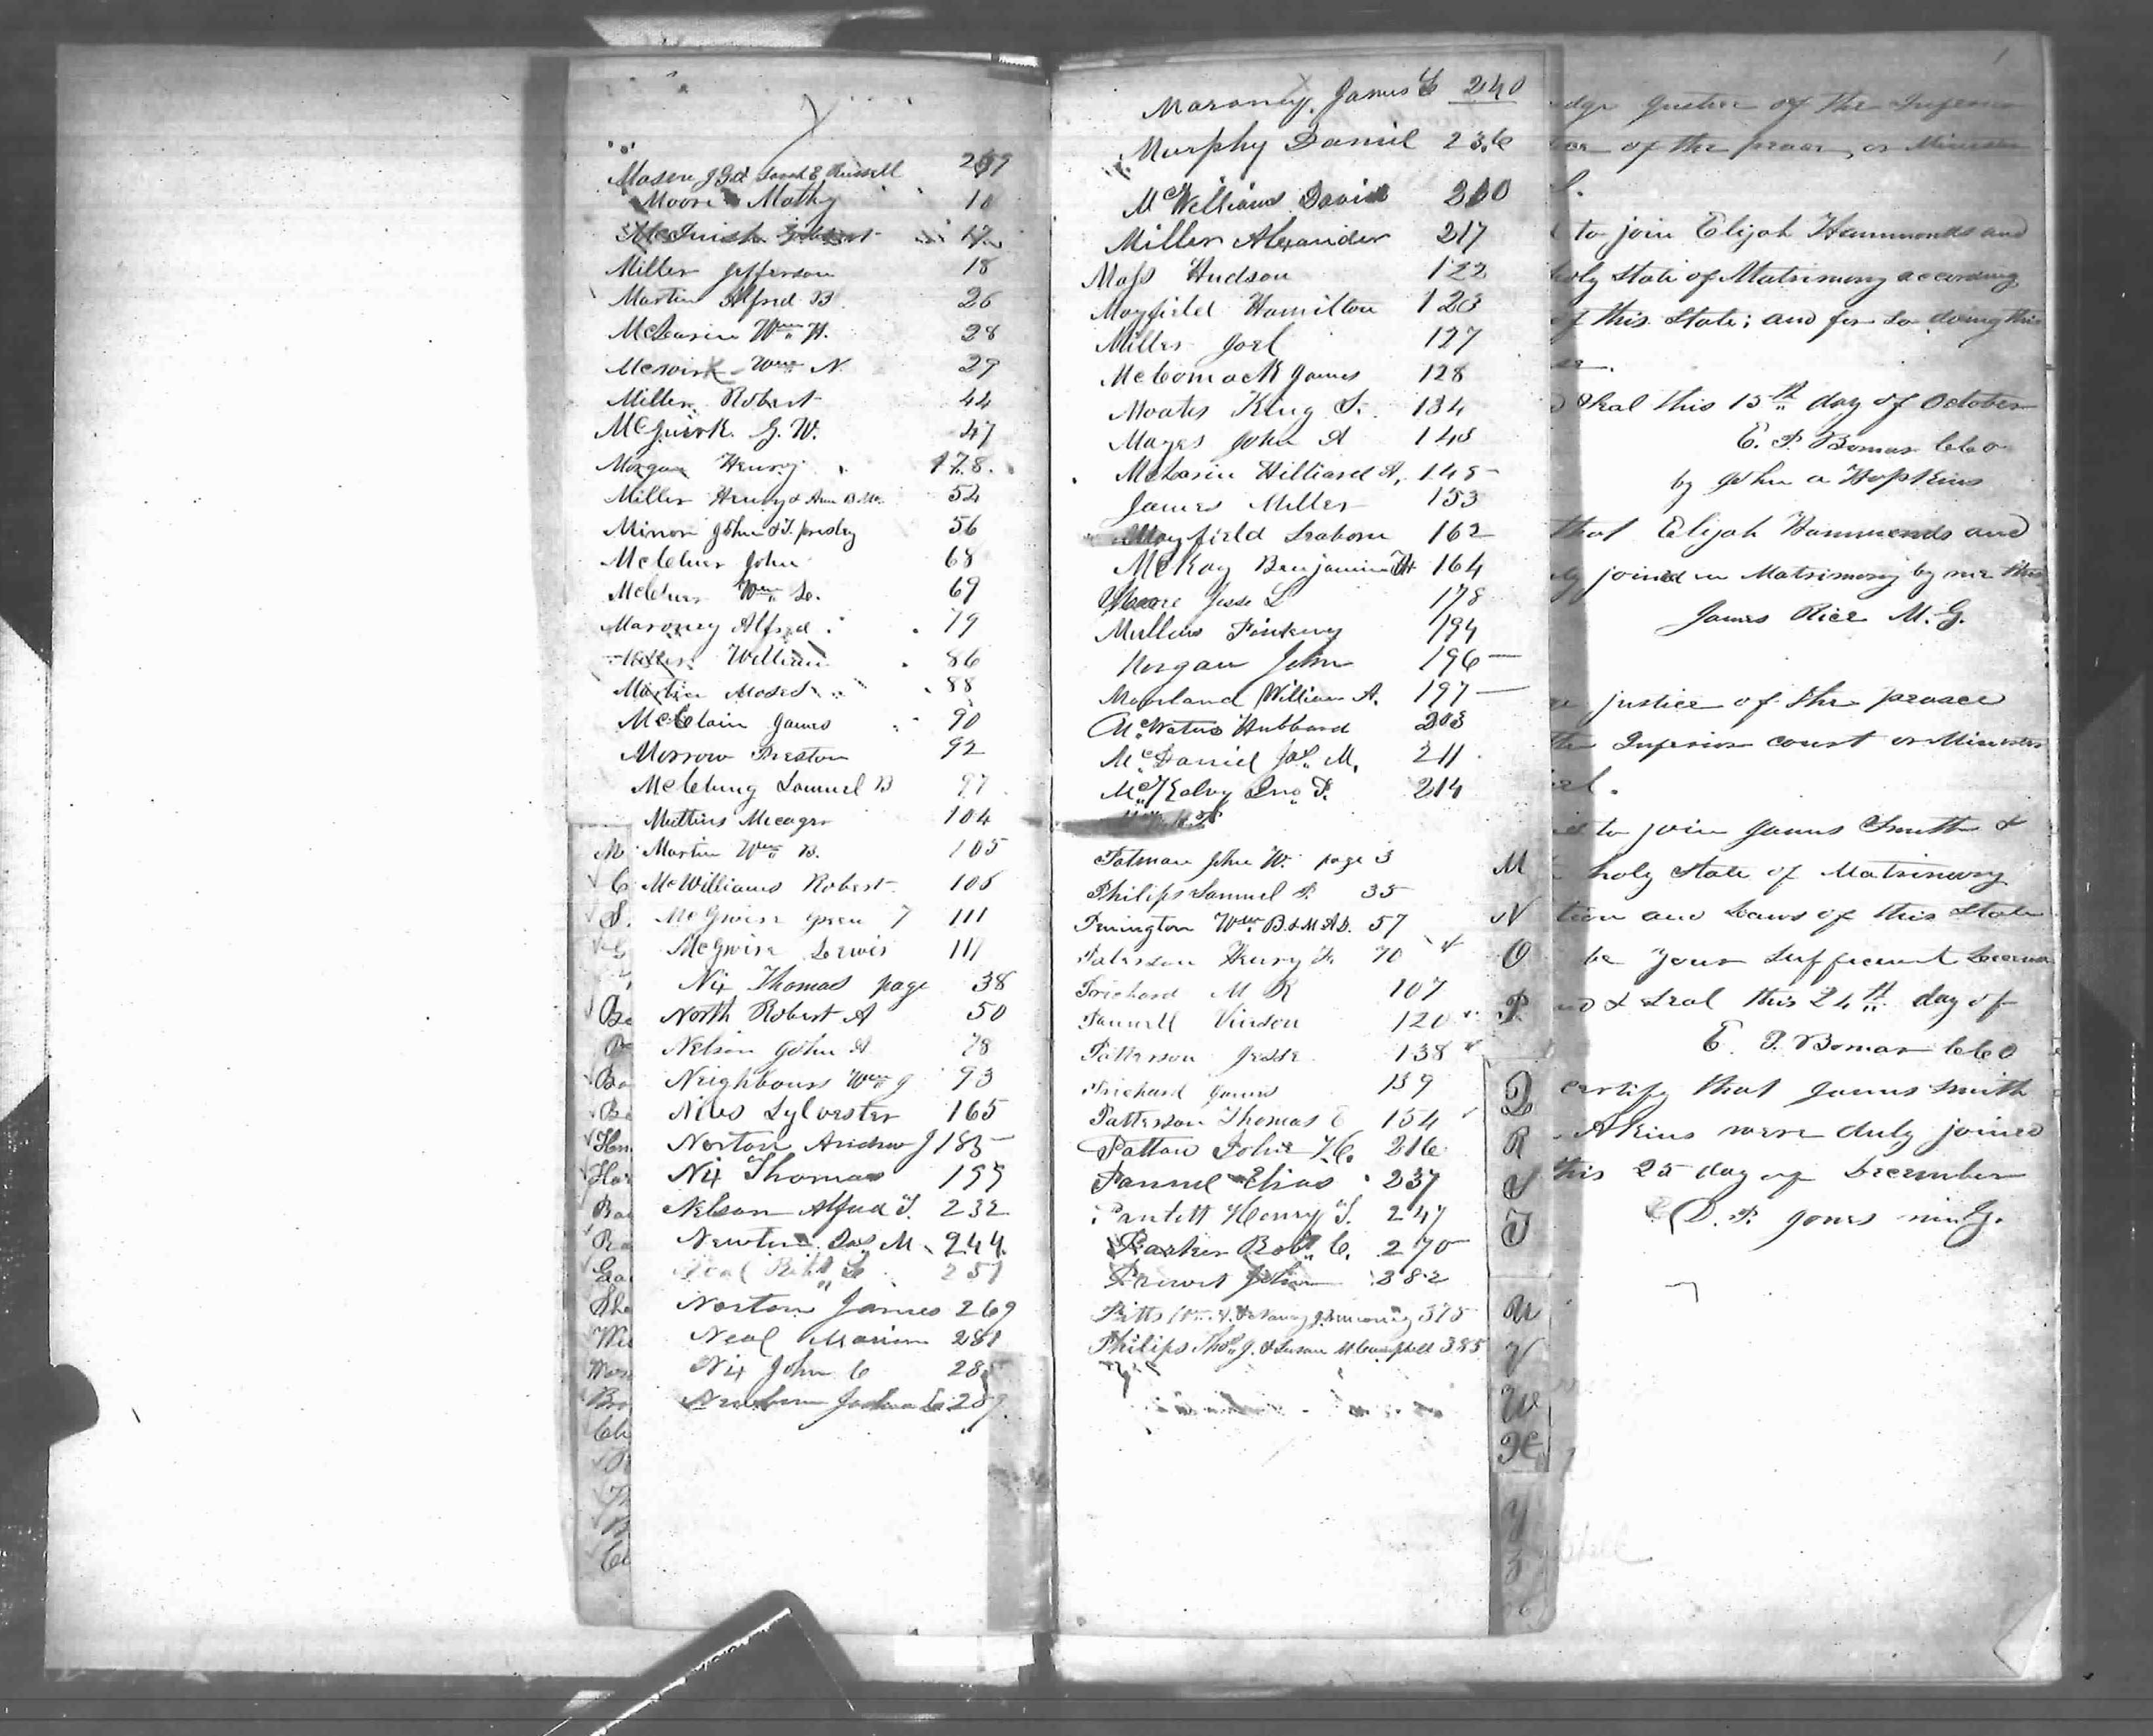 Mason J G & Sarah E Russell 249
Moore Mathy 10
17
Miller Jefferson 18
Martin Alfred B. 26
McLarin Wm H. 28
Wm N. 29
Miller Robert 44
McGuirk G. W. 47
Morgan Henry 178
Miller Henry & Ann 54
Minor John & T. presley 56
McClure John 68
McClure Wm L. 69
Maroney Alfred 79
William 86
Martin Moses 88
McClain James 90
Morrow Preston 92
McClung Samuel B 97
Mullins Micager 104
M Martin Wm B. 105
C McWilliams Robert 106
S. McGwire Green 7 111
McGwire Lewis 111
Nix Thomas page 38
Be North Robert A 50
Nelson John A 78
Bo Neighbours Wm J 93
Be Niles Sylvester 165
Hen Norton Andrew J 185
Har Nix Thomas 199
Ro Nelson Alfred T. 232
Ra Newton Jas M. 244
Geo Neal Robt 257
She Norton James 269
Wil Neal Marion 281
Mor Nix John C 285
Bro Newborn Joshua 289
Ch
Maroney James L 240
Murphy Daniel 236
McWilliams David 210
Miller Alexander 217
Moss Hudson 122
Mayfield Hamilton 123
Miller Joel 127
McComack James 128
Moates King S. 134
Mayes John A 148
McLarin Hilliard A, 148
James Miller 153
Mayfield Seaborn 162
McKay Benjamin H 164
Moore Jesse L 178
Mullins Pinkney 194
Morgan John 196
Moreland William A. 197
McWaters Hubbard 203
McDaniel Jas. M, 211
McKelvy Jno T. 214
Patman John W. page 3
Philips Samuel P. 35
Penington Wm B. & M A D. 57
Paterson Henry F. 70
Prichard M R 107
Pannell Vinson 120
Patterson Jesse 138
Prichard James 139
Patterson Thomas E 154
Patton John H.C. 216
Pannel Elias 237
Pantett Henry T. 247
Parker Robt C. 270
Prewet John 282
Pitts Wm & Nancy 375
Philips Thos J. & Susan M Campbell 385
M
N
O
P
Q
R
S
T
U
V
W
X
Y
Z
1
Judge Justice of the Inferior
of the peace, or Minister
to join Elijah Hammonds and
holy State of Matrimony according
of this State; and for So doing this
Seal this 15th day of October
E. P. Bomar CCO
by John a Hopkins
that Elijah Hammonds and
joined in Matrimony by me this
James Rice M. G.
justice of the peace
the Inferior court or Minister
to join James Smith &
holy State of Matrimony
tion and Laws of this State
be your Sufficient License
& Seal this 24th day of
E. P. Bomar CCO
certify that James Smith
Akins were duly joined
this 25 day of December
D. P. Jones min G.